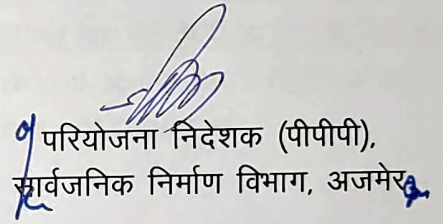 परियोजना निदेशक (पीपीपी),
सार्वजनिक निर्माण विभाग, अजमेर